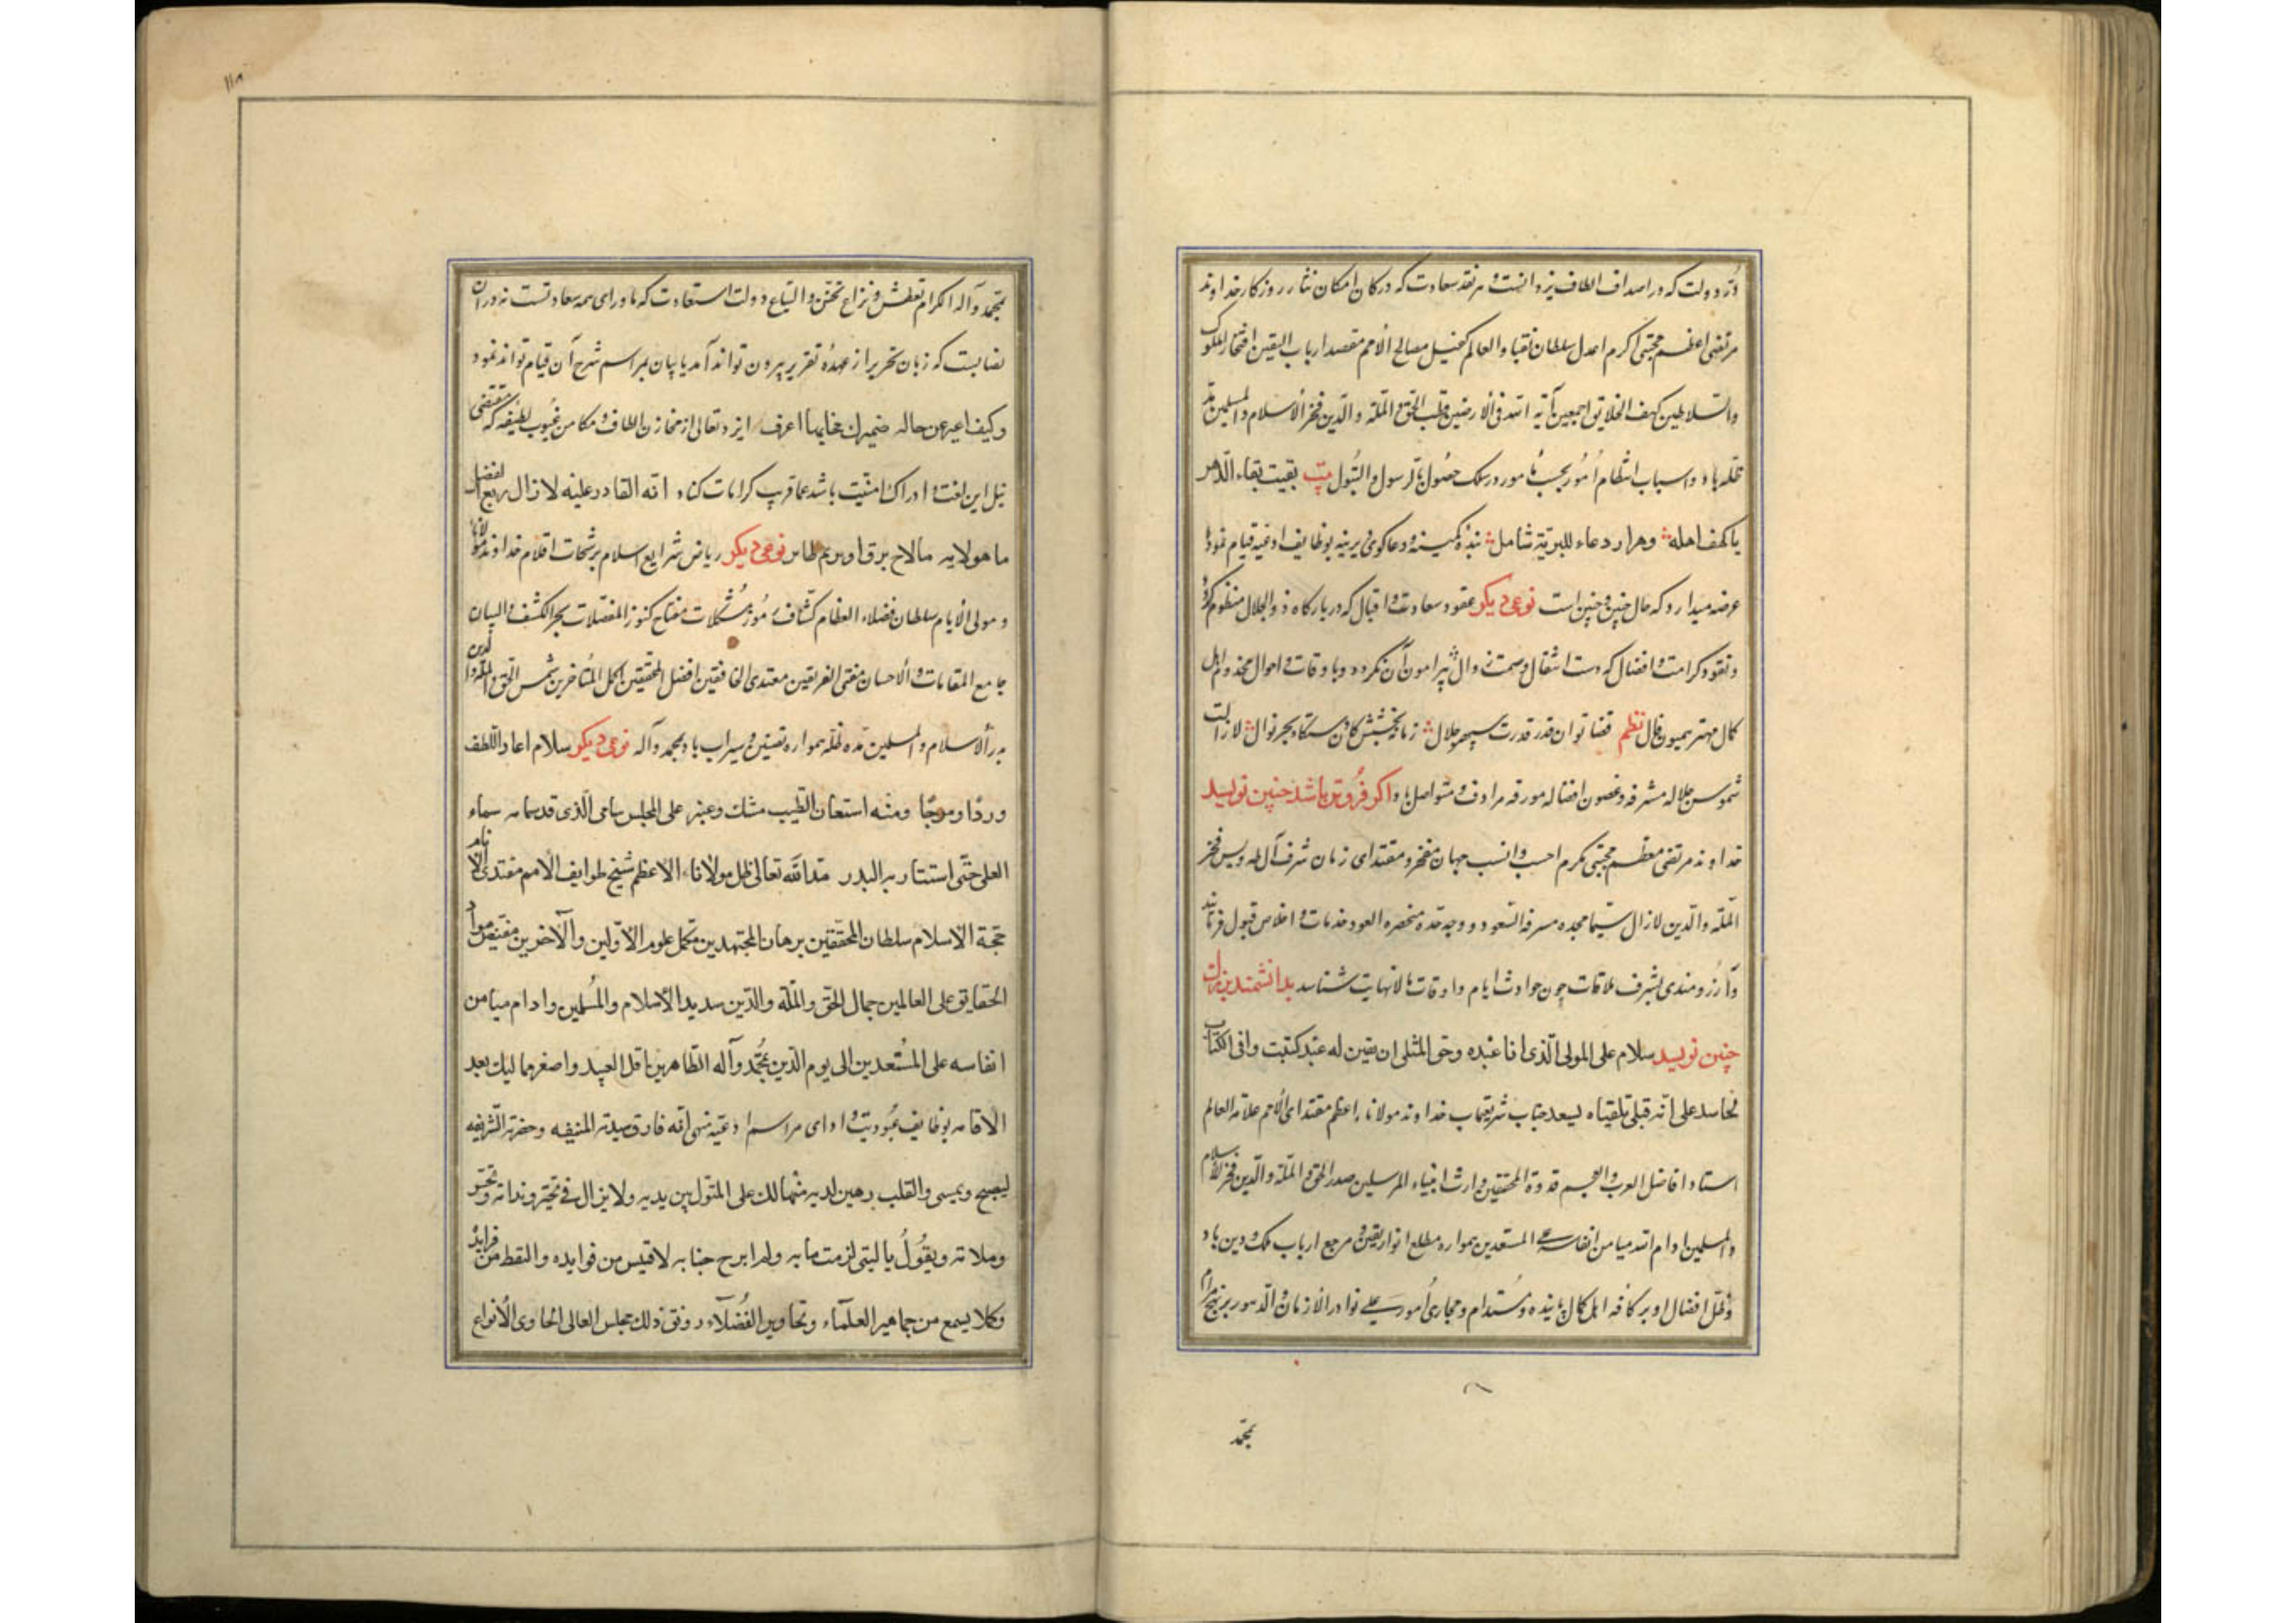 در دولت که در اصداف الطاف یزدانیست و هر نقد سعادت که در کان امکان نثار روزکار خداوند
مرتضی اعظم مجتبی اکرم اعدل سلطان نقباء العالم کفیل مصالح الأمم مقصد ارباب الیقین افتخار الملوک
والسلاطین کهف الخلایق اجمعین آیة الله فی الأرضین قطب الحق و الملّه و الدّین فخر الأسلام و المسلمین مد
ظله باد و اسباب انتظام اُمور بحسب مامور در سلک حصُول بآل رسول و البتُول بیت بقیت بقاء الدّهر
یا کهف اهله وهذا دعاء للبریّة شامل بنده کمینه و دعاکوی دیرینه بوظایف ادعیه قیام نموده
عرضه میدارد که حال چنین و چنین است نوعی دیکر عقود سعادت و اقبال که در بارکاه ذو الجلال منظوم کردد
و نقود کرامت و افضال که دست انتقال و سمت زوال پیرامون آن نکردد و باوقات و احوال مخدوم اهل
کمال مهتر همیون فال نظم قضا توان قدر قدرت سپهر جلال زمانه بخشش کان دستکاه بحر نوال لازالت
شموس جلاله مشرفه و غصون افضاله مورقه مرادف و متواصل باد و اکر فروتر باشد چنین نویسد
خداوند مرتضی معظم مجتبی مکرم احسب و انسب جهان مفخر و مقتدای زمان شرف آل طه و یس فخر
الملّه والدّین لازال سیما مجده مسرفة السّعود و وجه قده منخصره العود خدمات و اخلاص قبول فرمایند
و آرزُومندی بشرف ملاقات چون حوادث ایام و اوقات بلا نهایت شناسد بدانشمندبزرك
چنین نویسد سلام علی المولی الّذی انا عبده وحق لمثلی ان یقین له عبد کتبت وانی للکتاب
لحاسد علی انّه قبلی تلقیناه لیسعد جناب شریعتمآب خداوند مولاناء اعظم مقتدای الأمم علامه العالم
استاد افاضل العرب و العجم قدوة المحققین وارث انبیاء المرسلین صدر الحق و الملّة والدّین فخر الأسلام
و المسلمین ادام الله میامن انفاسه علی المستعدین همواره مطلع انوار یقین و مرجع ارباب ملک و دین باد
وظلّ افضال او بر کافه اهل کمال پاینده و مستدام و مجاری اُمور علی نوادر الازمان و الدّهور بر نهج مرام
بمحمد
۱۱۸
بمحمد وآله الکرام تعطش و نزاع تحنن و التیاع دولت استعادت که ماورای همه سعادتست نه در آن
نصابست که زبان تحریر از عهدهٔ تقریر بیرون تواند آمد یا بیان بمراسم شرح آن قیام تواند نمود
وکیف اعبر عن حاله ضمیرك عنایها اعرف ایزد تعالی از مخازن الطاف و مکامن غیوب لطیفه که مقتضی
نیل این لغت و ادراك امنیّت باشد عما قریب کرامات کناد انّه القادر علیه لازال ربع الفضل
ما هولایه مالاح برق اوبرم طایر نوعی دیکر ریاض شرایع اسلام برشحات اقلام خداوند مولانا
و مولی الأیام سلطان فضلاء العظام کشّاف رمُوز مشکلات مفتاح کنوز المعضلات بحر الکشف و البیان
جامع المقامات و الأحسان مفتی الفریقین مقتدی الخافقین افضل المحققین اکمل المُتأخرین شمس الحق و الملّة و الدین
بدر الأسلام و المسلمین مد ظلّه همواره تعیین و سیراب باد بمحمد وآله نوعی دیکر سلام اعاد اللطف
وردًا وموجًا ومنه استعان الطیب مشك وعنبر علی المجلس سامی الّذی قد سما به سماء
العلی حتّی استنار به البدر مدّ الله تعالی ظل مولاناء الاعظم شیخ طوایف الأمم مقتدی الأنام
حجّة الأسلام سلطان المحققین برهان المجتهدین مکمّل علوم الأوّلین والآخرین مفیض مواد
الحقایق علی العالمین جمال الحق والملّة والدّین سدید الأسلام والمُسلمین وادام میامن
انفاسه علی المُستعدین الی یوم الدّین بمُحمّد وآله الطّاهرین اقل العبید واصغر ممالیك بعد
الاقامه بوظایف عبُودیت و ادای مراسم ادعیّه منهی انّه فارق سدته المنیفه وحضرته الشّریفه
لیصبح ویمسی والقلب رهین لدیه متمالك علی المثول بین یدیه ولایزال فی تحیّر وندامة وتحسّر
وملامة ویقُولُ یا لیتنی لزمت مابه ولم ابرح جنابه لاقتبس من فوایده والتقط من فراید
وکلا یسمع من جماهیر العلمآء وتحاویر الفُضلآء رونق ذلك مجلس العالی الحاوی الأنواع